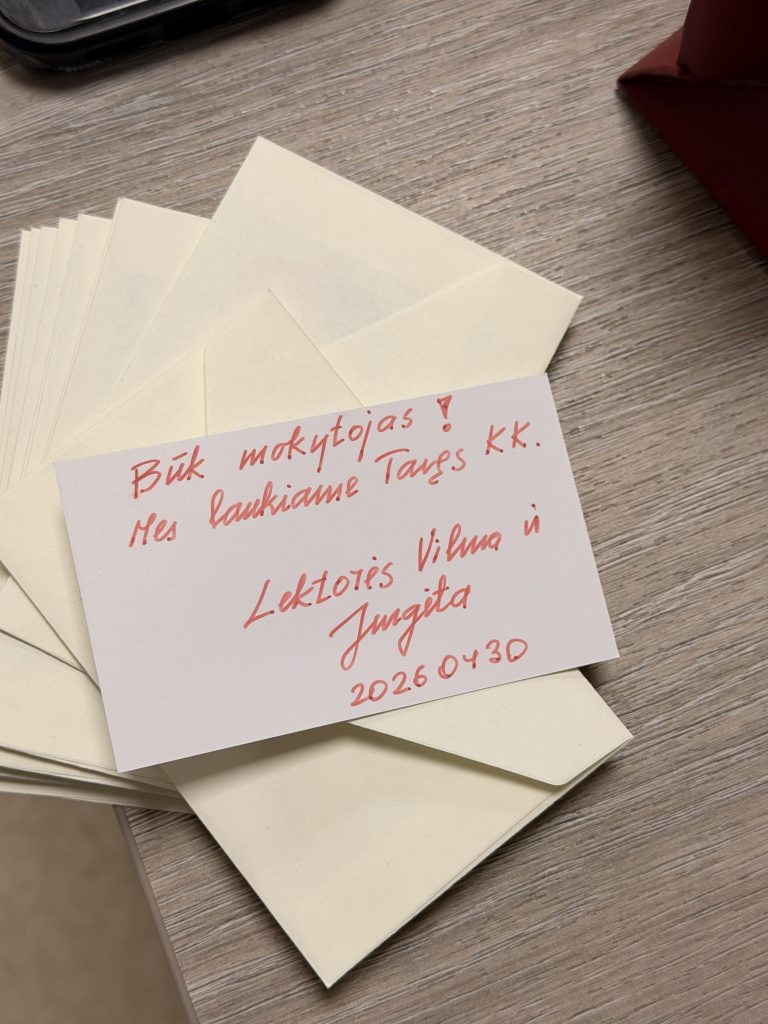 Būk mokytojas !
Mes laukiame Tavęs KK.
Lektorės Vilma ir
Jurgita
2026 04 30